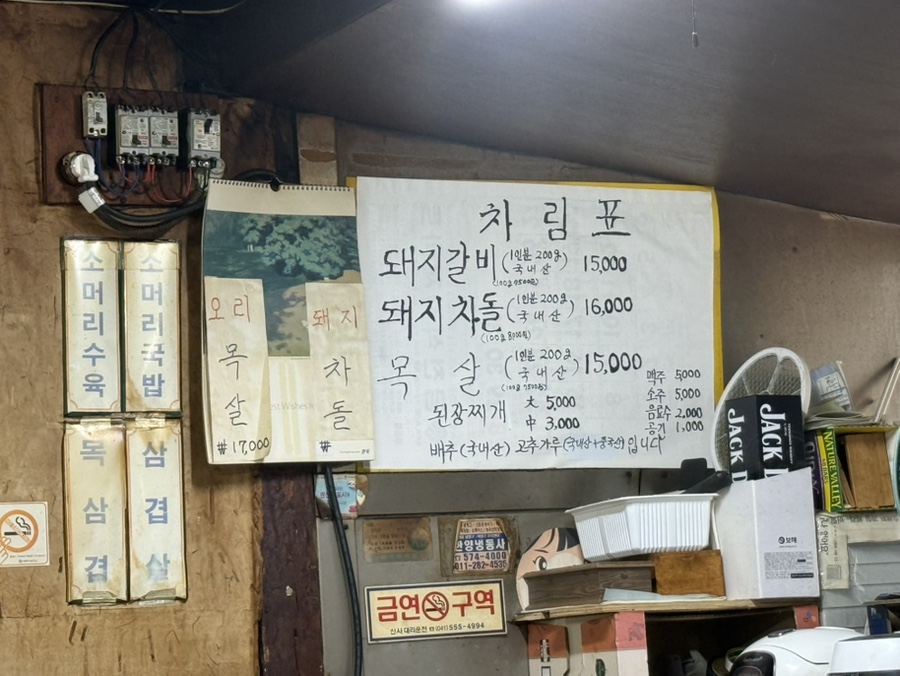 차림표
돼지갈비 (1인분 200g 국내산) 15,000
(100g 7500원)
돼지차돌 (1인분 200g 국내산) 16,000
(100g 8000원)
목살 (1인분 200g 국내산) 15,000
(100g 7500원)
된장찌개 大 5,000
中 3,000
맥주 5,000
소주 5,000
음료수 2,000
공기 1,000
배추(국내산) 고추가루(국내산+중국산)입니다
오리
목살
₩17,000
돼지
차돌
₩
소머리수육
소머리국밥
목삼겹
삼겹살
금연구역
신사대리운전 ☎(041)555-4994
574-4000
011-282-4536
JACK D
JACK D
NATURE VALLEY